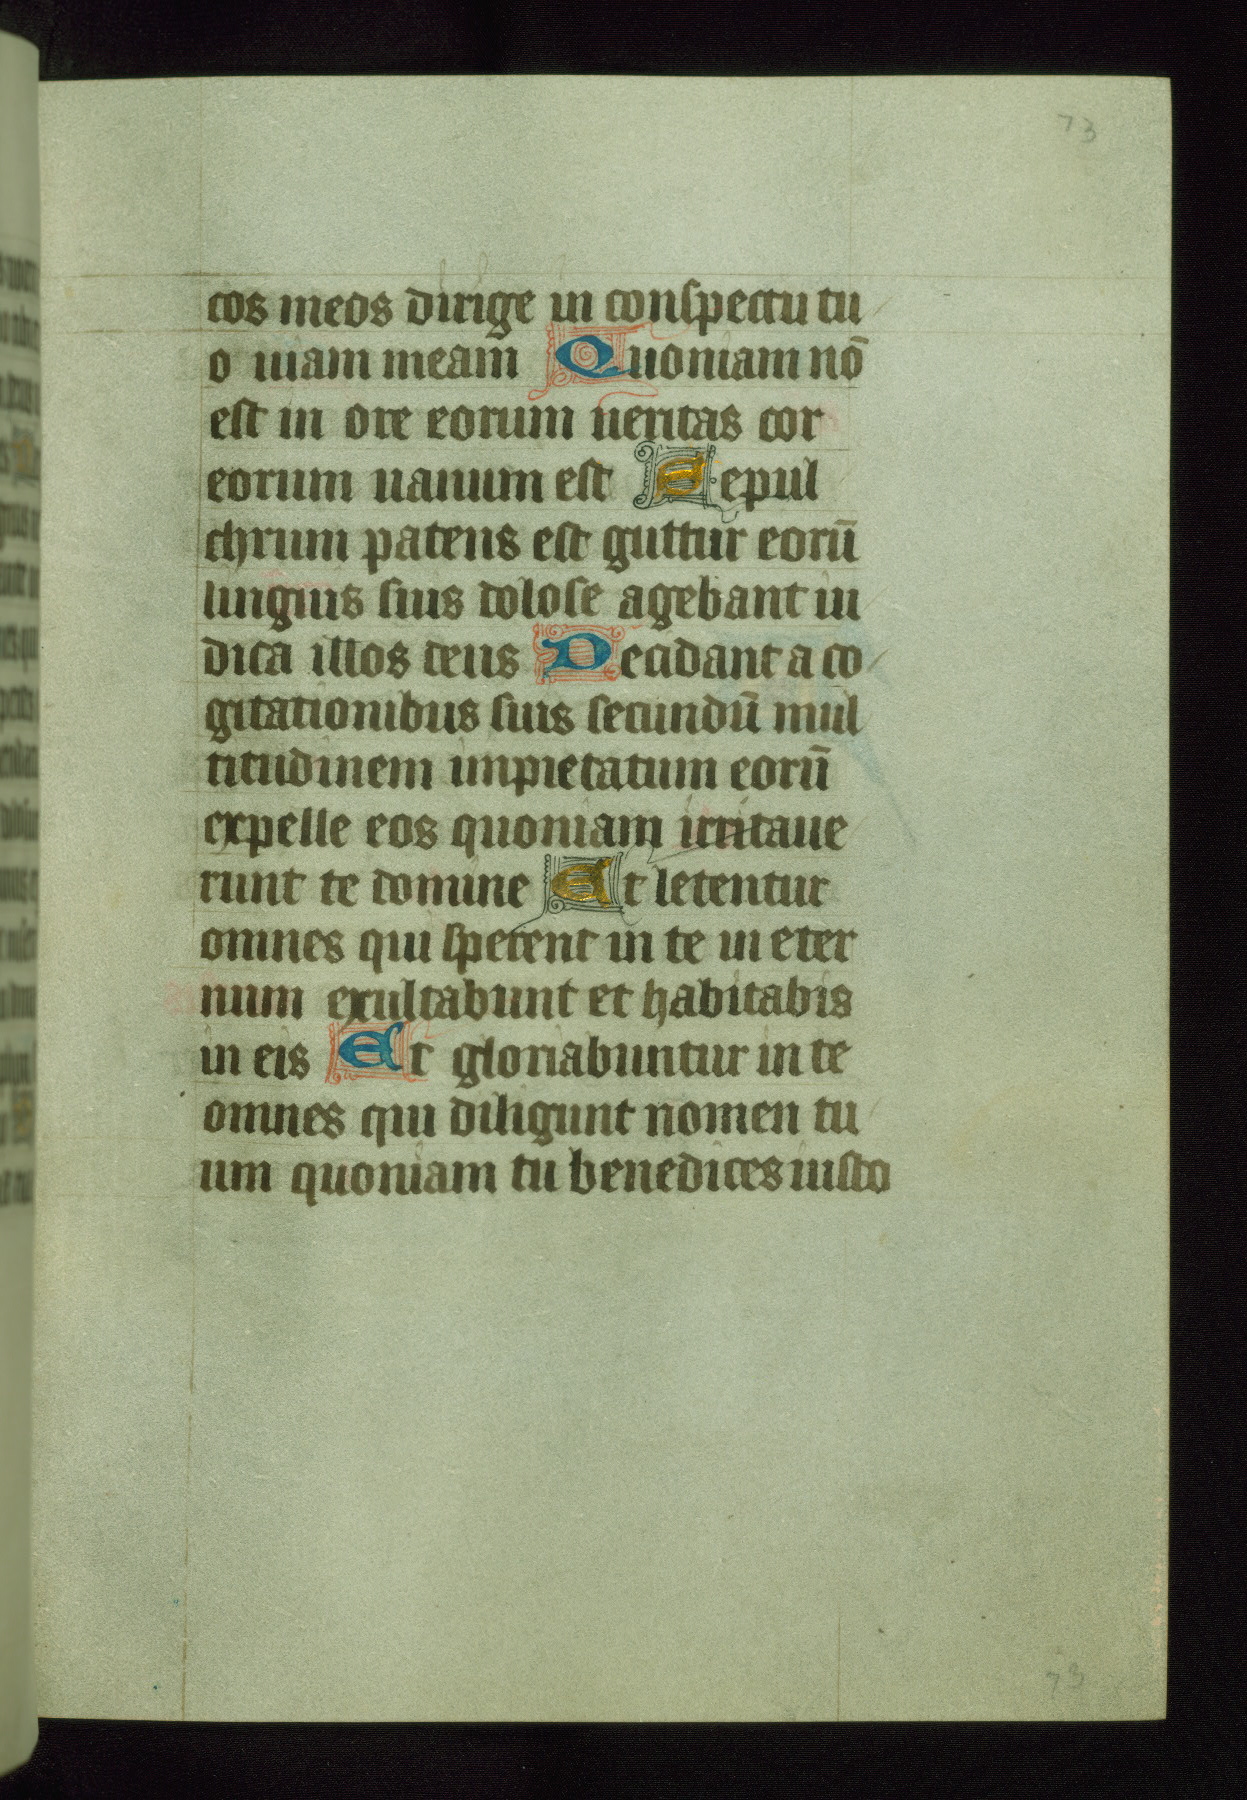 73
cos meos dirige in conspectu tu
o uiam meam Quoniam nō
est in ore eorum ueritas cor
eorum uanum est Sepul
chrum patens est guttur eorū
linguis suis dolose agebant iu
dica illos deus Decidant a co
gitationibus suis secundū mul
titudinem impietatum eorū
expelle eos quoniam irritaue
runt te domine Et letentur
omnes qui sperent in te in eter
num exultabunt et habitabis
in eis Et gloriabuntur in te
omnes qui diligunt nomen tu
um quoniam tu benedices iusto
73